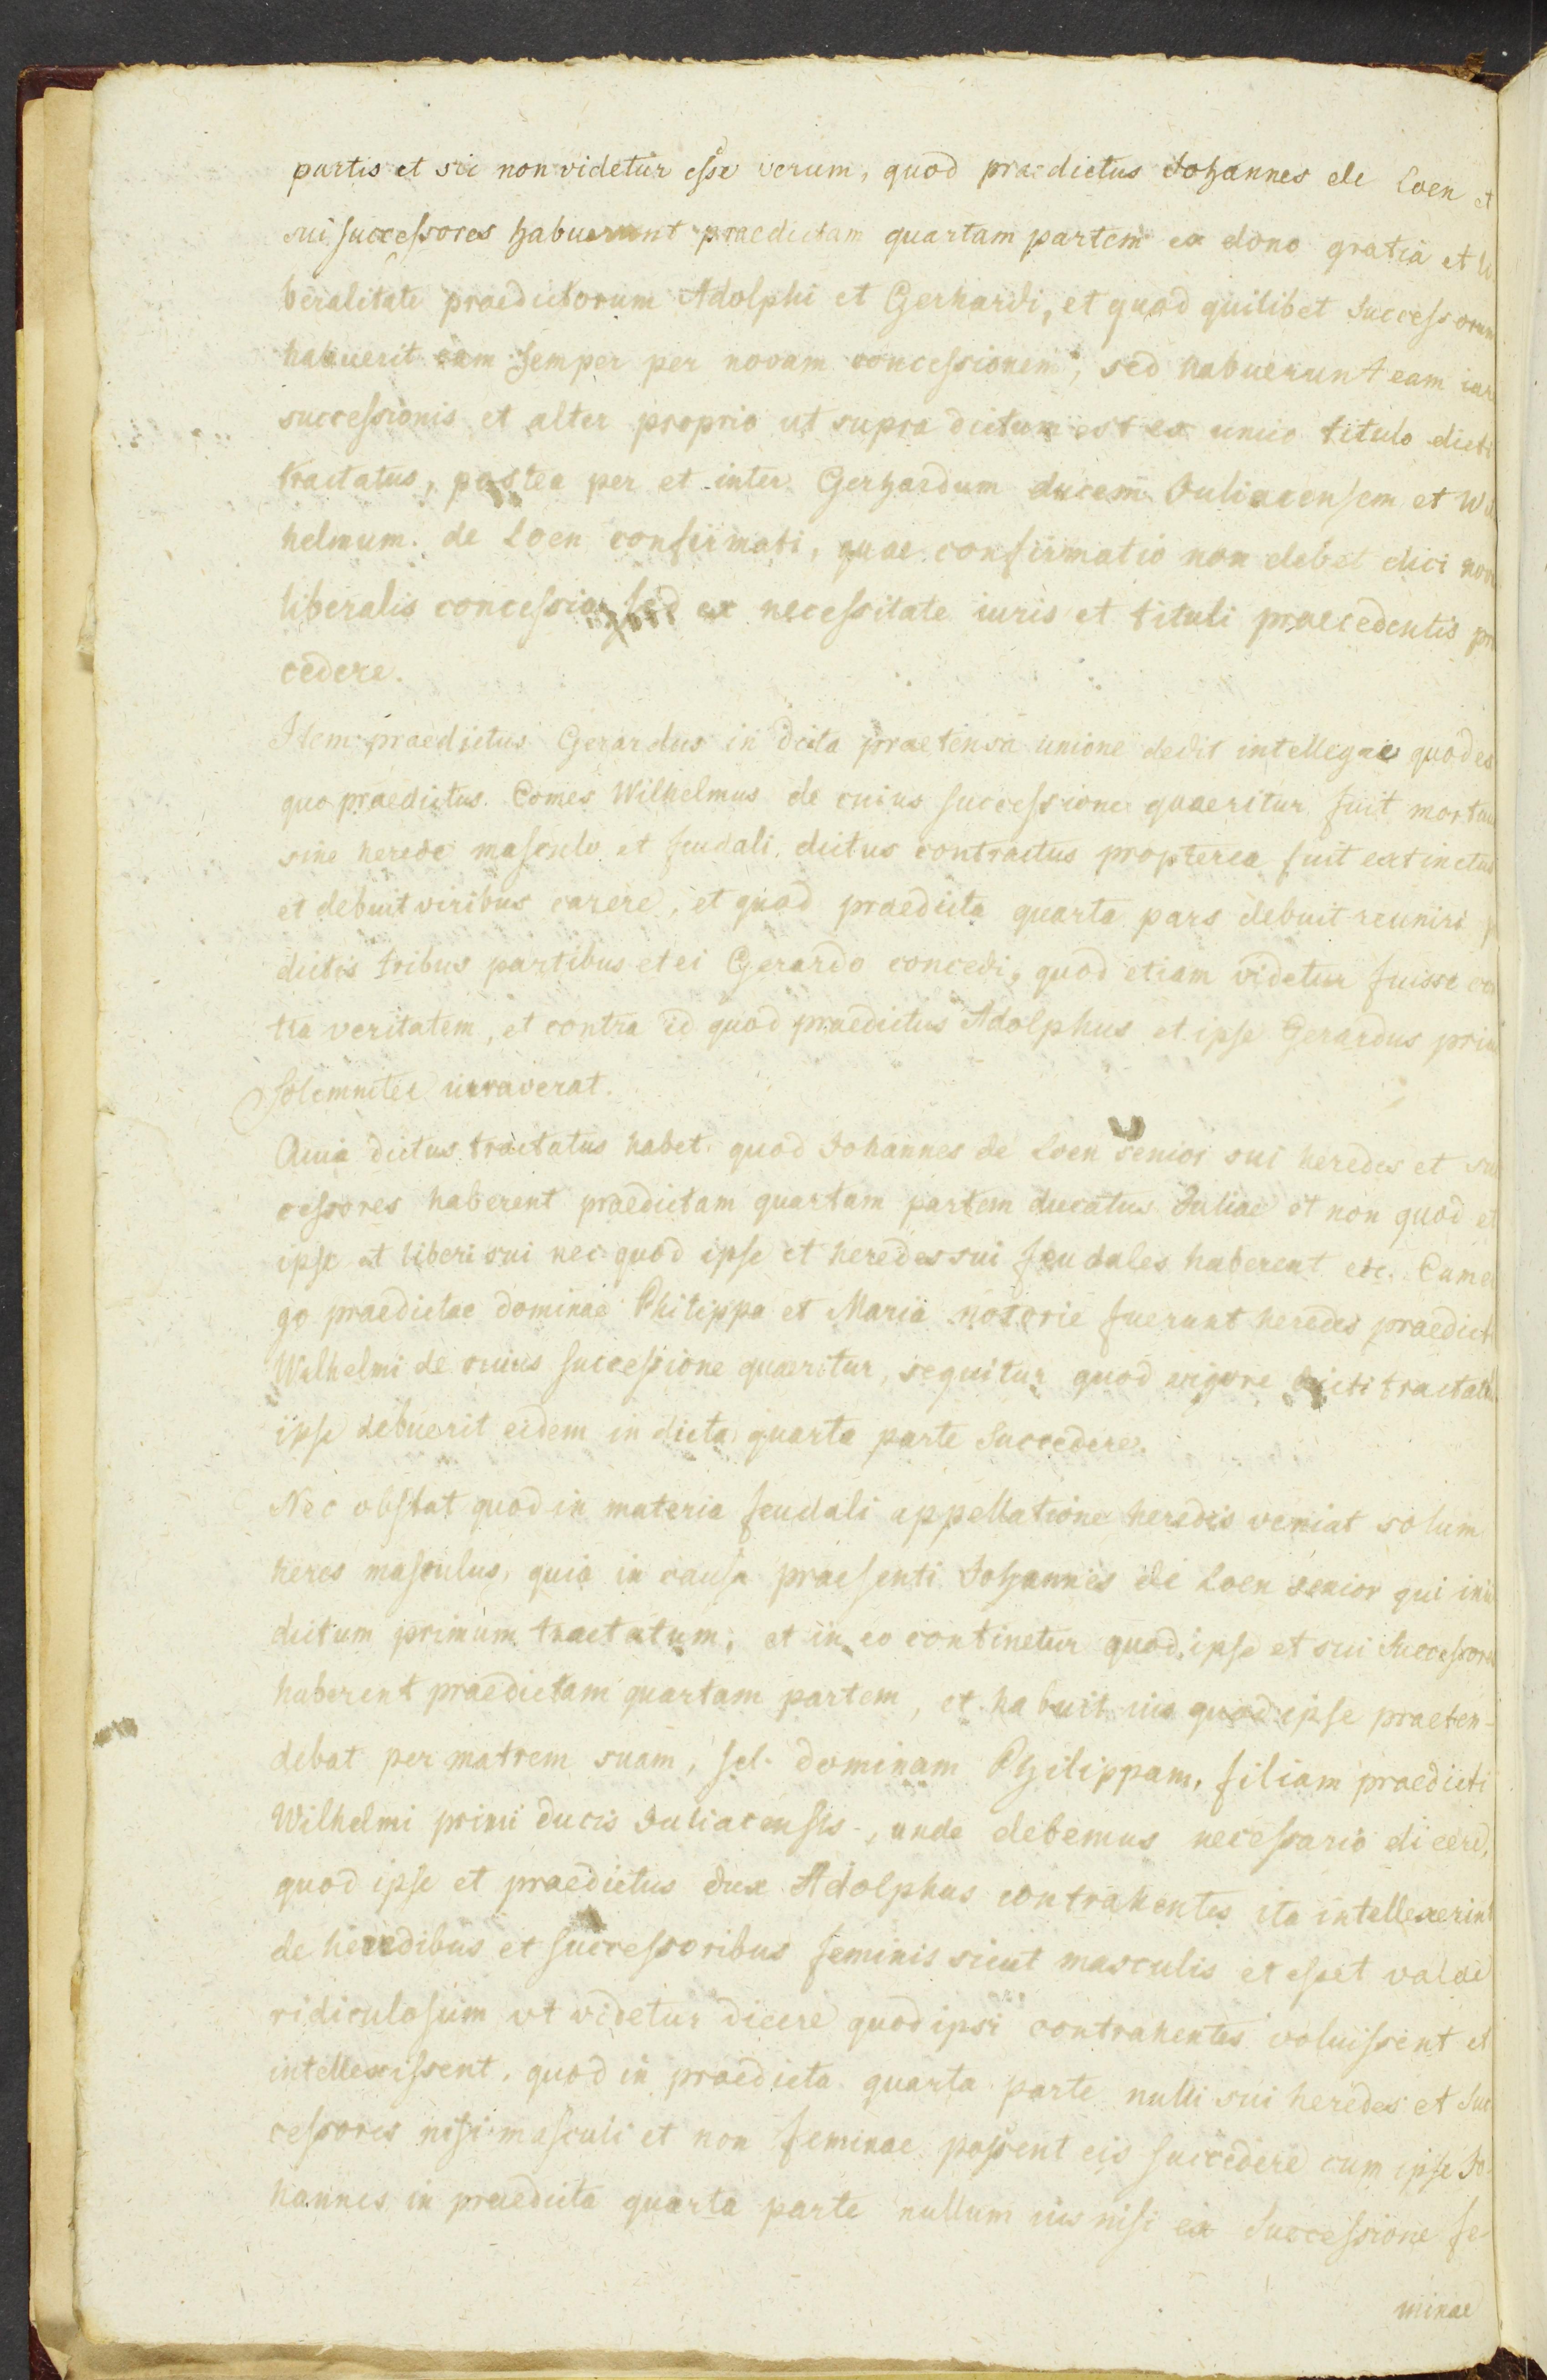 partis et sic non videtur esse verum, quod praedictus Johannes de Loen et
sui successores habuerunt praedictam quartam partem ex dono gratia et li
beralitate praedictorum Adolphi et Gerhardi, et quod quilibet successorum
habuerit eam semper per novam concessionem, sed habuerunt eam iur
successionis et alter proprio ut supra dictum est ex unico titulo dicti
tractatus, postea per et inter Gerhardum ducem Juliacensem et Wil
helmum. de Loen confirmati, quae confirmatio non debet dici nov
liberalis concessio, sed ex necessitate iuris et tituli praecedentis pro
cedere.
Item praedictus Gerardus in dicta praetensa unione dedit intellegere quod ex
quo praedictus Comes Wilhelmus de cuius successione quaeritur fuit mortuu
sine herede masculo et feudali, dictus contractus propterea fuit extinctus
et debuit viribus carere, et quod praedicta quarta pars debuit reuniri p
dictis tribus partibus et ei Gerardo concedi, quod etiam videtur fuisse con
tra veritatem, et contra id quod praedictus Adolphus et ipse Gerardus prius
solemniter iuraverat.
Quia dictus tractatus habet quod Johannes de Loen senior sui heredes et suc
cessores haberent praedictam quartam partem ducatus Juliae et non quod et
ipse et liberi sui nec quod ipse et heredes sui feudales haberent etc. Cum er
go praedictae dominae Philippa et Maria notorie fuerunt heredes praedict
Wilhelmi de cuius successione quaeritur, sequitur quod vigore dicti tractatu
ipse debuerit eidem in dicta quarta parte succedere.
Nec obstat quod in materia feudali appellatione heredis veniat solum
heres masculus, quia in causa praesenti Johannes de Loen senior qui iniit
dictum primum tractatum, et in eo continetur quod, ipse et sui successores
haberent praedictam quartam partem, et habuit ius quod ipse praeten-
debat per matrem suam, scl. dominam Philippam, filiam praedicti
Wilhelmi primi ducis Juliacensis, unde debemus necessario dicere,
quod ipse et praedictus dux Adolphus contrahentes ita intellexerint
de heredibus et successoribus feminis sicut masculis et esset valde
ridiculosum ut videtur dicere quod ipsi contrahentes voluissent et
intellexissent, quod in praedicta quarta parte nulli sui heredes et suc
cessores nisi masculi et non feminae possent eis succedere cum ipse Jo-
hannes in praedicta quarta parte nullum ius nisi ex successione fe-
minae